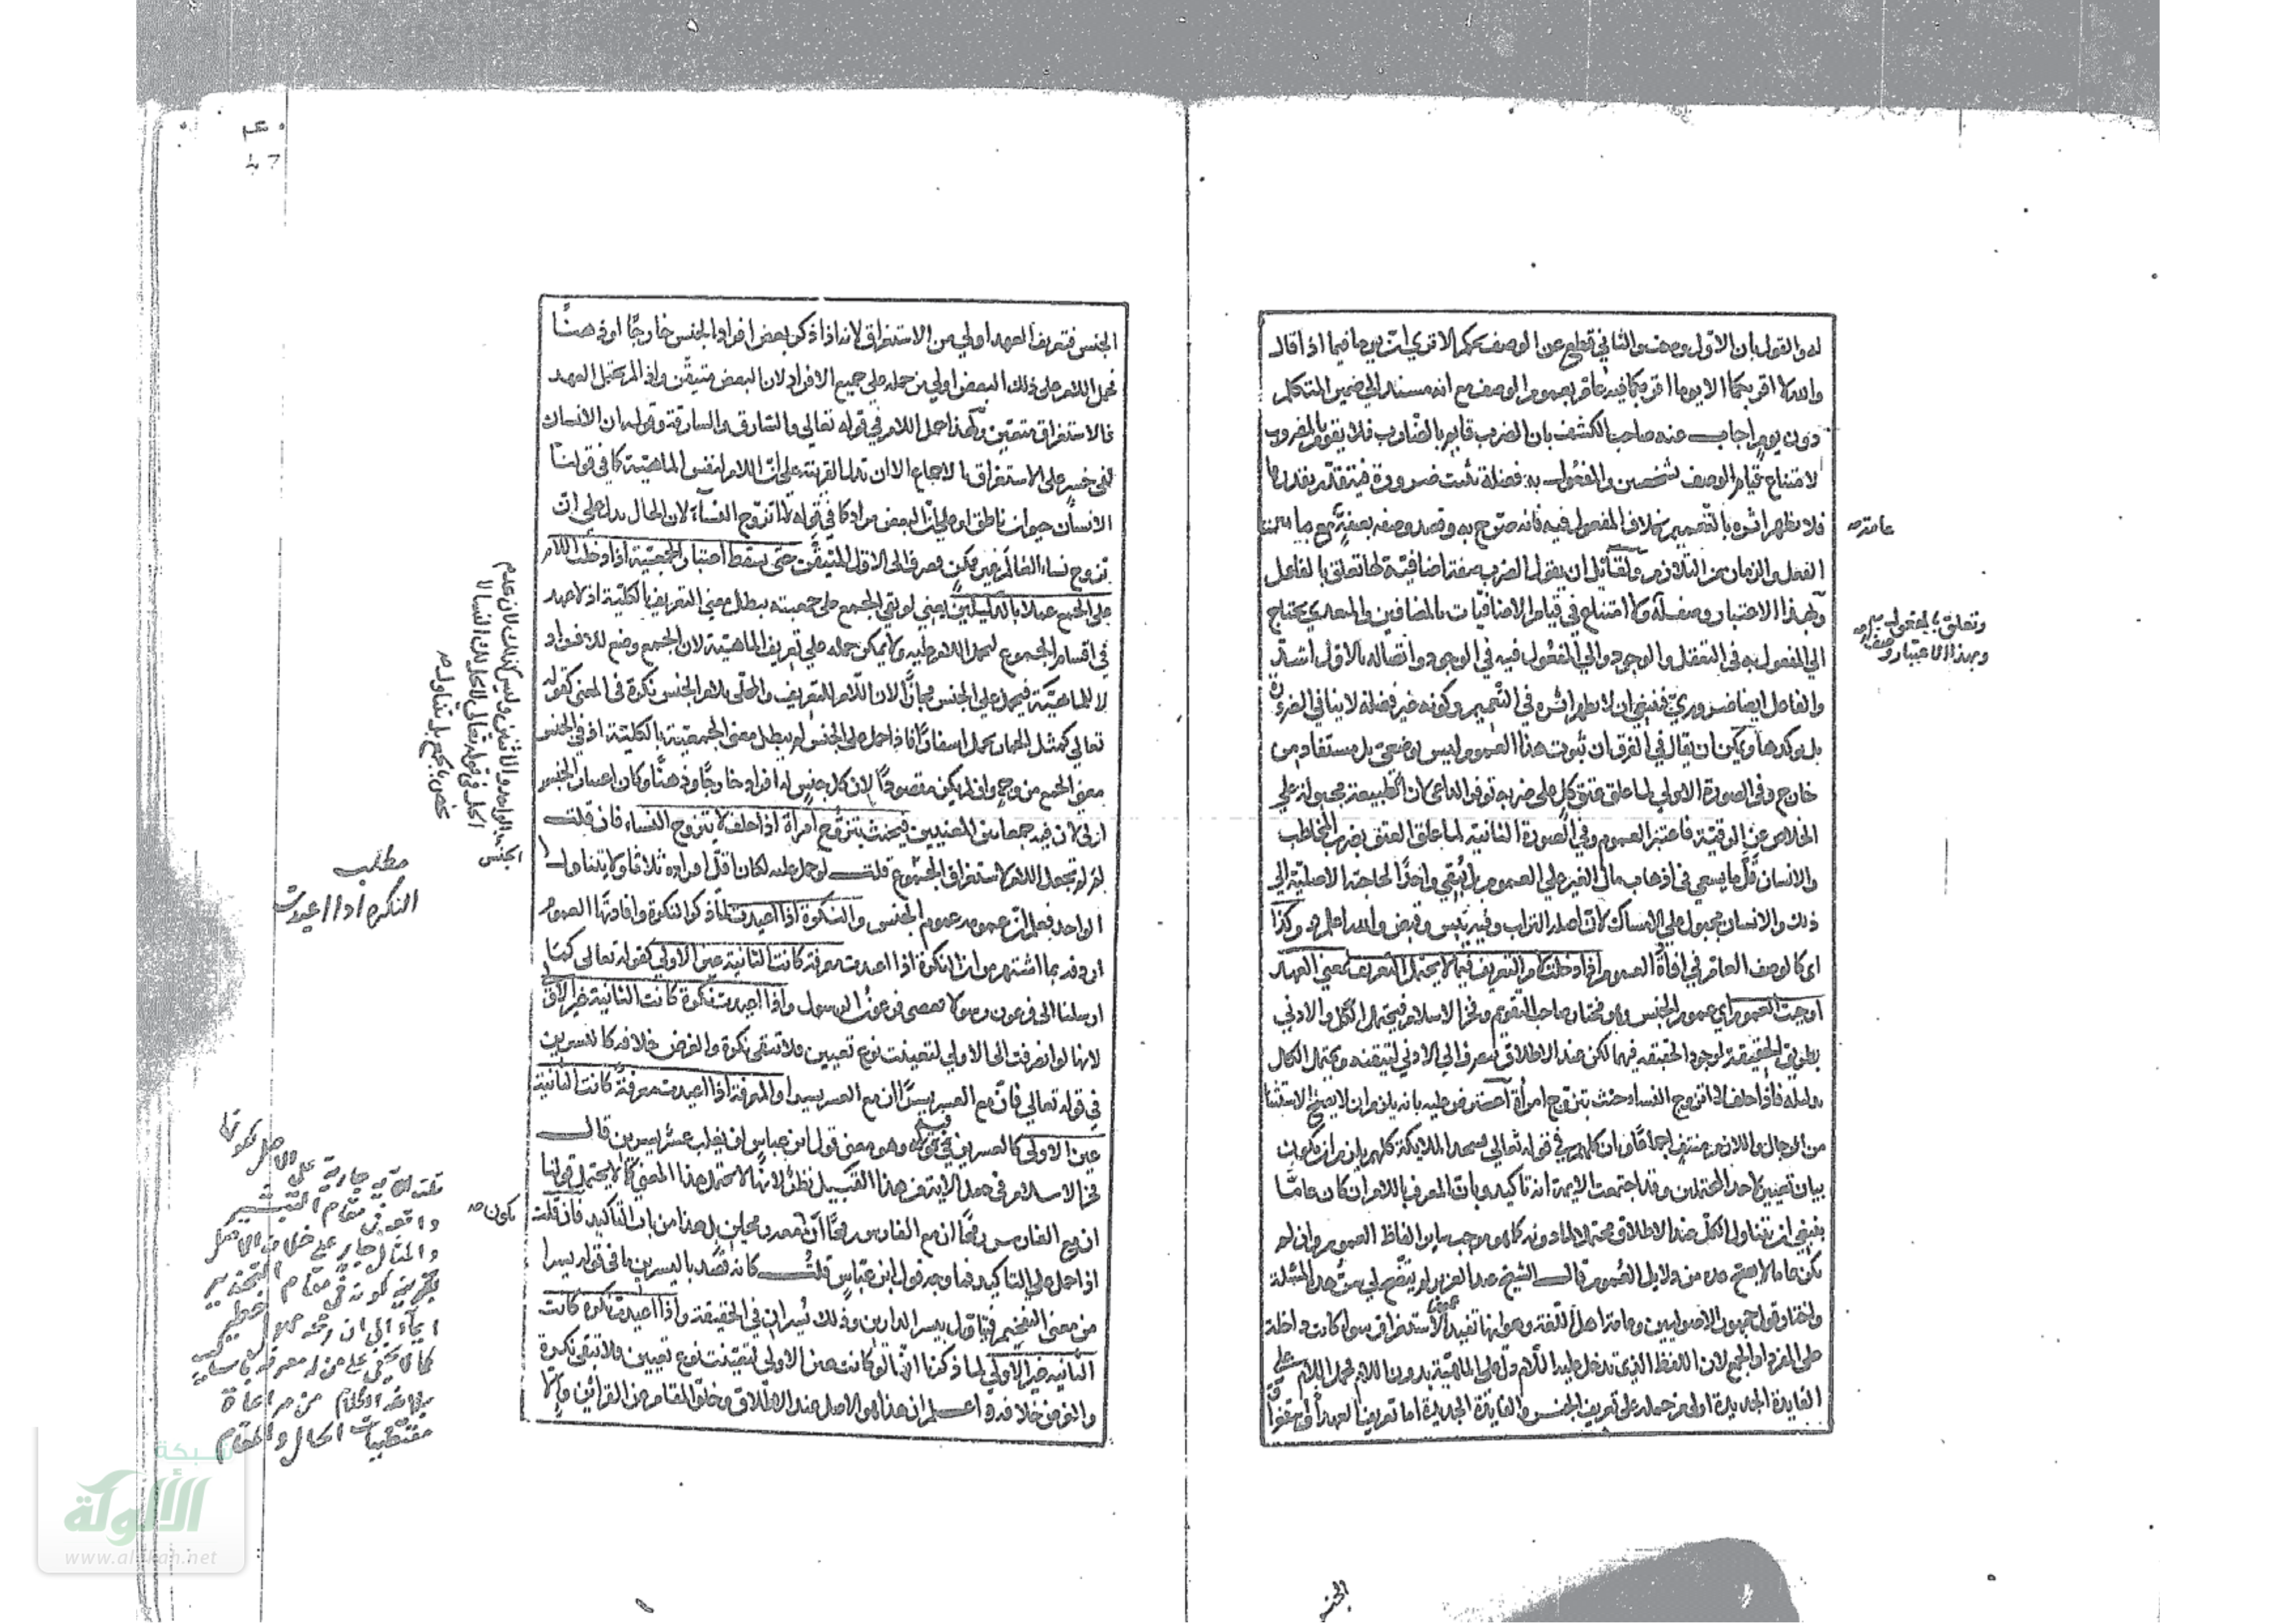 له والقول بان الاول وصف والثاني قطع عن الوصف تحكم الا تري ان يوما فيما اذا قال
والله لا اقربكما الا يوما اقربكما فيه عام بعموم الوصف مع انه مسند الي ضمير المتكلم
دون يوم اجاب عنه صاحب الكشف بان الضرب قايم بالضارب فلا يقوم بالمضروب
لامتناع قيام الوصف بشخصين والمفعول به فضلة تثبت ضرورة فيتقدر بقدرها
فلا يظهر اثره بالتعميم بخلاف المفعول فيه فانه صرح به وقصد وصفه بصفة مع ما بين
عامة صح
الفعل والزمان من التلازم ولقائل ان يقول الضرب صفة اضافية لها تعلق بالفاعل
وبهذا الاعتبار وصف له ولا امتناع في قيام الاضافيات بالمضافين والمتعدي يحتاج
وتعلق بالمفعول به
وبهذا الاعتبار وصف له صح
الي المفعول به في التعقل والوجود والي المفعول فيه في الوجود واتصاله بالاول اشد
والفاعل ايضا ضروري فينبغي ان لا يظهر اثره في التعميم وكونه غير فضلة لا ينافي الضرورة
بل يوكدها ويمكن ان يقال في الفرق ان ثبوت هذا العموم ليس بوضعي بل مستفاد من
خارج وفي الصورة الاولي لما علق عتق كل علي ضربه توفر الداعي لان الطبيعة مجبولة علي
الخلاص عن الرقية فاعتبر العموم وفي الصورة الثانية لما علق العتق بضرب المخاطب
والانسان قل ما يسعي في اذهاب مال الغير علي العموم بل يبقي واحدا لحاجته الاصلية الي
ذلك والانسان مجبول علي الامساك لان اصله التراب وفيه يبس وقبض والله اعلم وكذا
اي كالوصف العام في افادة العموم اذا دخلت لام التعريف فيما لا يحتمل التعريف لمعني العهد
اوجبت العموم اي عموم الجنس وهو مختار صاحب التقويم وفخر الاسلام فيحتمل الكل والادني
بطريق الحقيقة لوجود الحقيقة فيهما لكن عند الاطلاق ينصرف الي الادني لتيقنه ويحتمل الكل
بدليله فاذا حلف لا اتزوج النساء حنث بتزوج امرأة اعترض عليه بانه يلزم ان لا يصح الاستثنا
من الرجال واللازم منتف اجماعا وبان كلهم في قوله تعالي فسجد الملائكة كلهم يلزم ان يكون
بيان تعيين لاحد المحتملين وقد اجتمعت الايمة انه تاكيد وبان المعرف باللام ان كان عاما
ينبغي ان يتناول الكل عند الاطلاق محتملا لما دونه كما هو موجب ساير الفاظ العموم وان لم
يكن عاما لا يصح عده من دلايل العموم قال الشيخ عبد العزيز لم يتضح لي سر هذه المسئلة
واختار قول جمهور الاصوليين وعامة اهل اللغة وهو انها تفيد عموم الاستغراق سوا كانت داخلة
علي المفرد او الجمع لان اللفظ الذي تدخل عليه اللام دل علي الماهية بدون اللام فحمل اللام علي
الفايدة الجديدة اولي من حمله علي تعريف الجنس والفايدة الجديدة اما تعريف العهد او استغراق
الجنس
الجنس فتعريف العهد اولي من الاستغراق لانه اذا ذكر بعض افراد الجنس خارجا او ذهنا
فحمل اللام علي ذلك البعض اولي من حمله علي جميع الافراد لان البعض متيقن واذا لم يحتمل العهد
فالاستغراق متعين ولهذا حمل اللام في قوله تعالي والسارق والسارقة وقوله ان الانسان
لفي خسر علي الاستغراق بالاجماع الا ان تدل القرينة علي ان اللام لنفس الماهية كما في قولنا
الانسان حيوان ناطق او علي ان البعض مراد كما في قوله لا اتزوج النساء لان الحال يدل علي ان
تزوج نساء العالم غير ممكن فصرف الي الاول المتيقن حتي يسقط اعتبار الجمعية اذا دخلت اللام
علي الجمع عملا بالدليلين يعني لو بقي الجمع علي جمعيته يبطل معني التعريف بالكلية اذ لا عهد
في اقسام الجموع ليحمل اللام عليه ولا يمكن حمله علي تعريف الماهية لان الجمع وضع للافراد
لا للماهية فيحمل علي الجنس مجازا لان اللام للتعريف والمحلي بلام الجنس نكرة في المعني كقوله
تعالي كمثل الحمار يحمل اسفارا فاذا حمل علي الجنس لم يبطل معني الجمعية بالكلية اذ في الجنس
معني الجمع من وجه وان لم يكن مقصودا لان كل جنس له افراد خارجا وذهنا وكان اعتبار الجنس
اولي لان فيه جمعا بين المعنيين فيحنث بتزوج امرأة اذا حلف لا يتزوج النساء فان قلت
لم لم تجعل اللام لاستغراق الجموع قلت لو حمل عليه لكان اقل افراده ثلاثا ولا يتناول
الواحد فعلم ان عمومه عموم الجنس والنكرة اذا اعيدت لما ذكر النكرة وافادتها العموم
اردفه بما اشتهر من ان النكرة اذا اعيدت معرفة كانت الثانية عين الاولي كقوله تعالي كما
ارسلنا الي فرعون رسولا فعصي فرعون الرسول واذا اعيدت نكرة كانت الثانية غير الاولي
لانها لو انصرفت الي الاولي لتعينت نوع تعيين فلا تبقي نكرة والفرض خلافه كاليسرين
في قوله تعالي فان مع العسر يسرا ان مع العسر يسرا والمعرفة اذا اعيدت معرفة كانت الثانية
عين الاولي كالعسرين في قوله وهو معني قول ابن عباس لن يغلب عسر يسرين قال
فخر الاسلام في جعل الاية من هذا القبيل نظر لانها لا تحتمل هذا المعني كما لا يحتمل قولنا
ان مع الفارس رمحا ان مع الفارس رمحا ان معه رمحين بل هذا من باب التاكيد فان قلت
يكون صح
اذا حمل علي التاكيد فما وجه قول ابن عباس قلت كانه قصد باليسرين ما في قوله يسرا
من معني التفخيم فيتناول يسر الدارين وذلك يسران في الحقيقة واذا اعيدت نكرة كانت
الثانية غير الاولي لما ذكرنا انها لو كانت عين الاولي لتعينت نوع تعيين فلا تبقي نكرة
والفرض خلافه واعلم ان هذا هو الاصل عند الاطلاق وخلو المقام عن القرائن والا
مطلب
النكره اذا اعيدت
قلت الاية جارية علي الاصل لكونها
واقعة في مقام التبشير
والمثال جار علي خلاف الاصل
كما لا يخفي علي من له معرفة باساليب
بلاغة الكلام من مراعاة
مقتضيات الحال والمقام
٤٠
47
شبكة
الألوكة
www.alukah.net